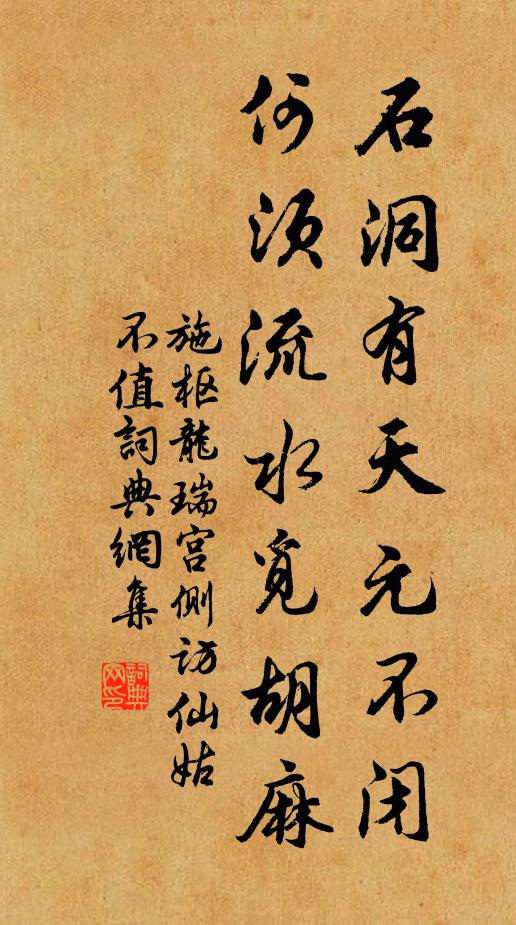 石洞有天元不闭
何须流水觅胡麻
施枢龍瑞宫侧访仙姑
不值詞典網集
詞典网印